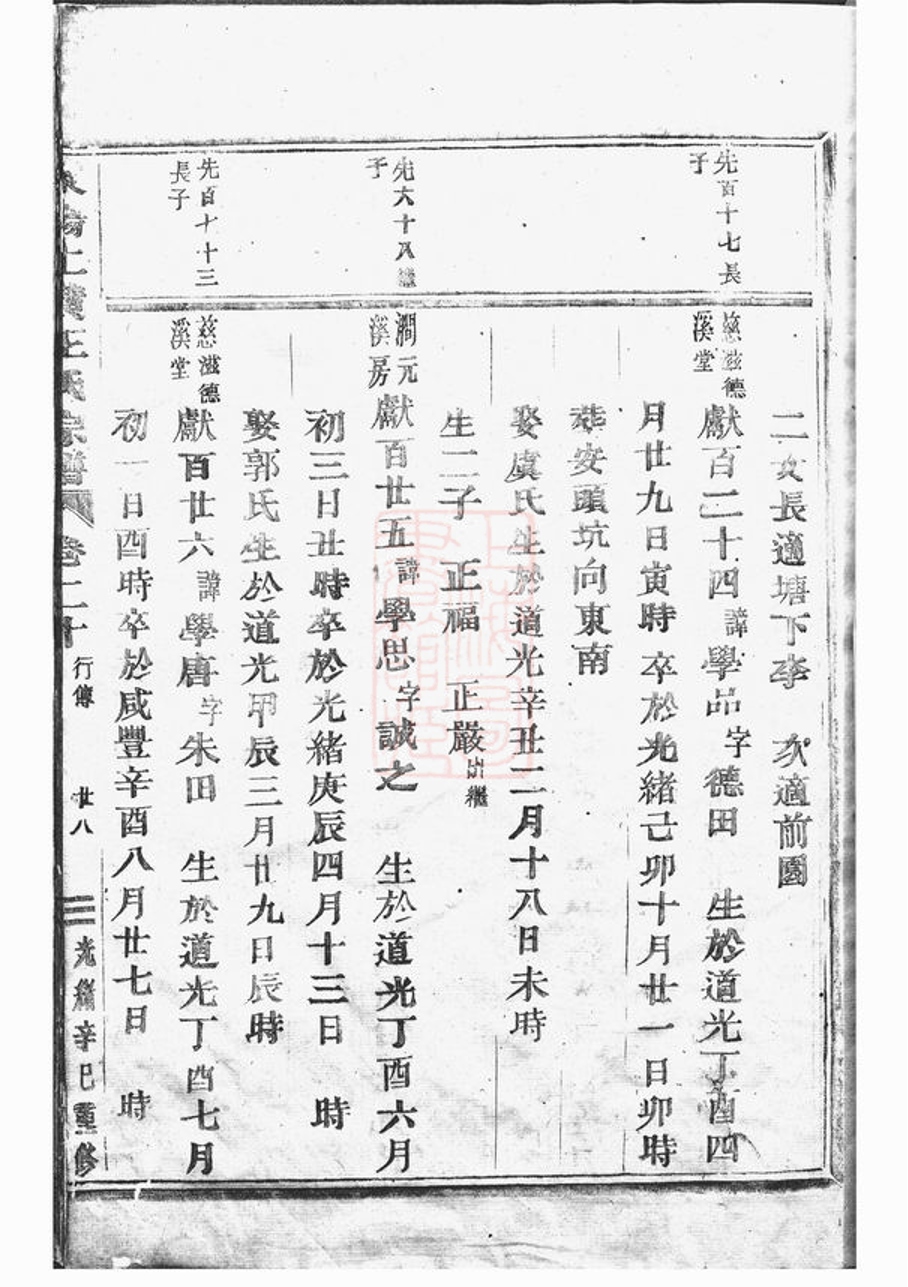 二女長適塘下李 次適前園
先百十七長
子
慈滋德
溪堂
獻百二十四諱學品字德田 生於道光丁酉四
月廿九日寅時 卒於光緒己卯十月廿一日卯時
葬安頭坑向東南
娶虞氏生於道光辛丑二月十八日未時
生二子 正福 正嚴出繼
先六十八繼
子
澗元
溪房
獻百廿五諱學思字誠之 生於道光丁酉六月
初三日丑時卒於光緒庚辰四月十三日 時
娶郭氏生於道光甲辰三月廿九日辰時
先百七十三
長子
慈滋德
溪堂
獻百廿六諱學唐字朱田 生於道光丁酉七月
初一日酉時卒於咸豐辛酉八月廿七日 時
王氏宗譜 卷二十 行傳 廿八 光緒辛巳重修